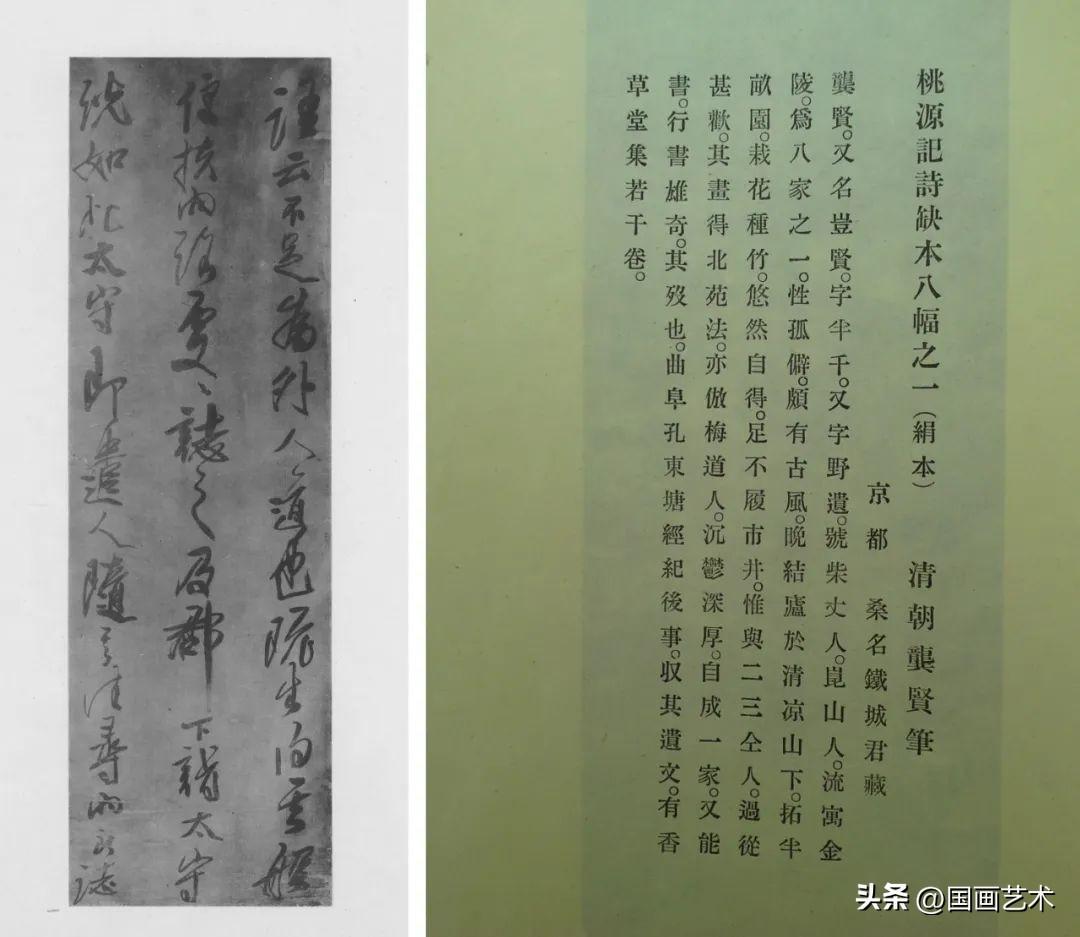 桃源記詩缺本八幅之一（絹本） 清朝龔賢筆
京都 桑名鐵城君藏
龔賢。又名豈賢。字半千。又字野遺。號柴丈人。崑山人。流寓金
陵。爲八家之一。性孤僻。頗有古風。晩結廬於清凉山下。拓半
畝園。栽花種竹。悠然自得。足不履市井。惟與二三仝人。過從
甚歡。其畫得北苑法。亦倣梅道人。沉鬱深厚。自成一家。又能
書。行書雄奇。其歿也。曲阜孔東塘經紀後事。収其遺文。有香
草堂集若干卷。
語云不足爲外人道也既出得其舩
便扶向路處〻誌之及郡下詣太守
説如此太守即遣人隨其往尋向所誌
头条 @国画艺术